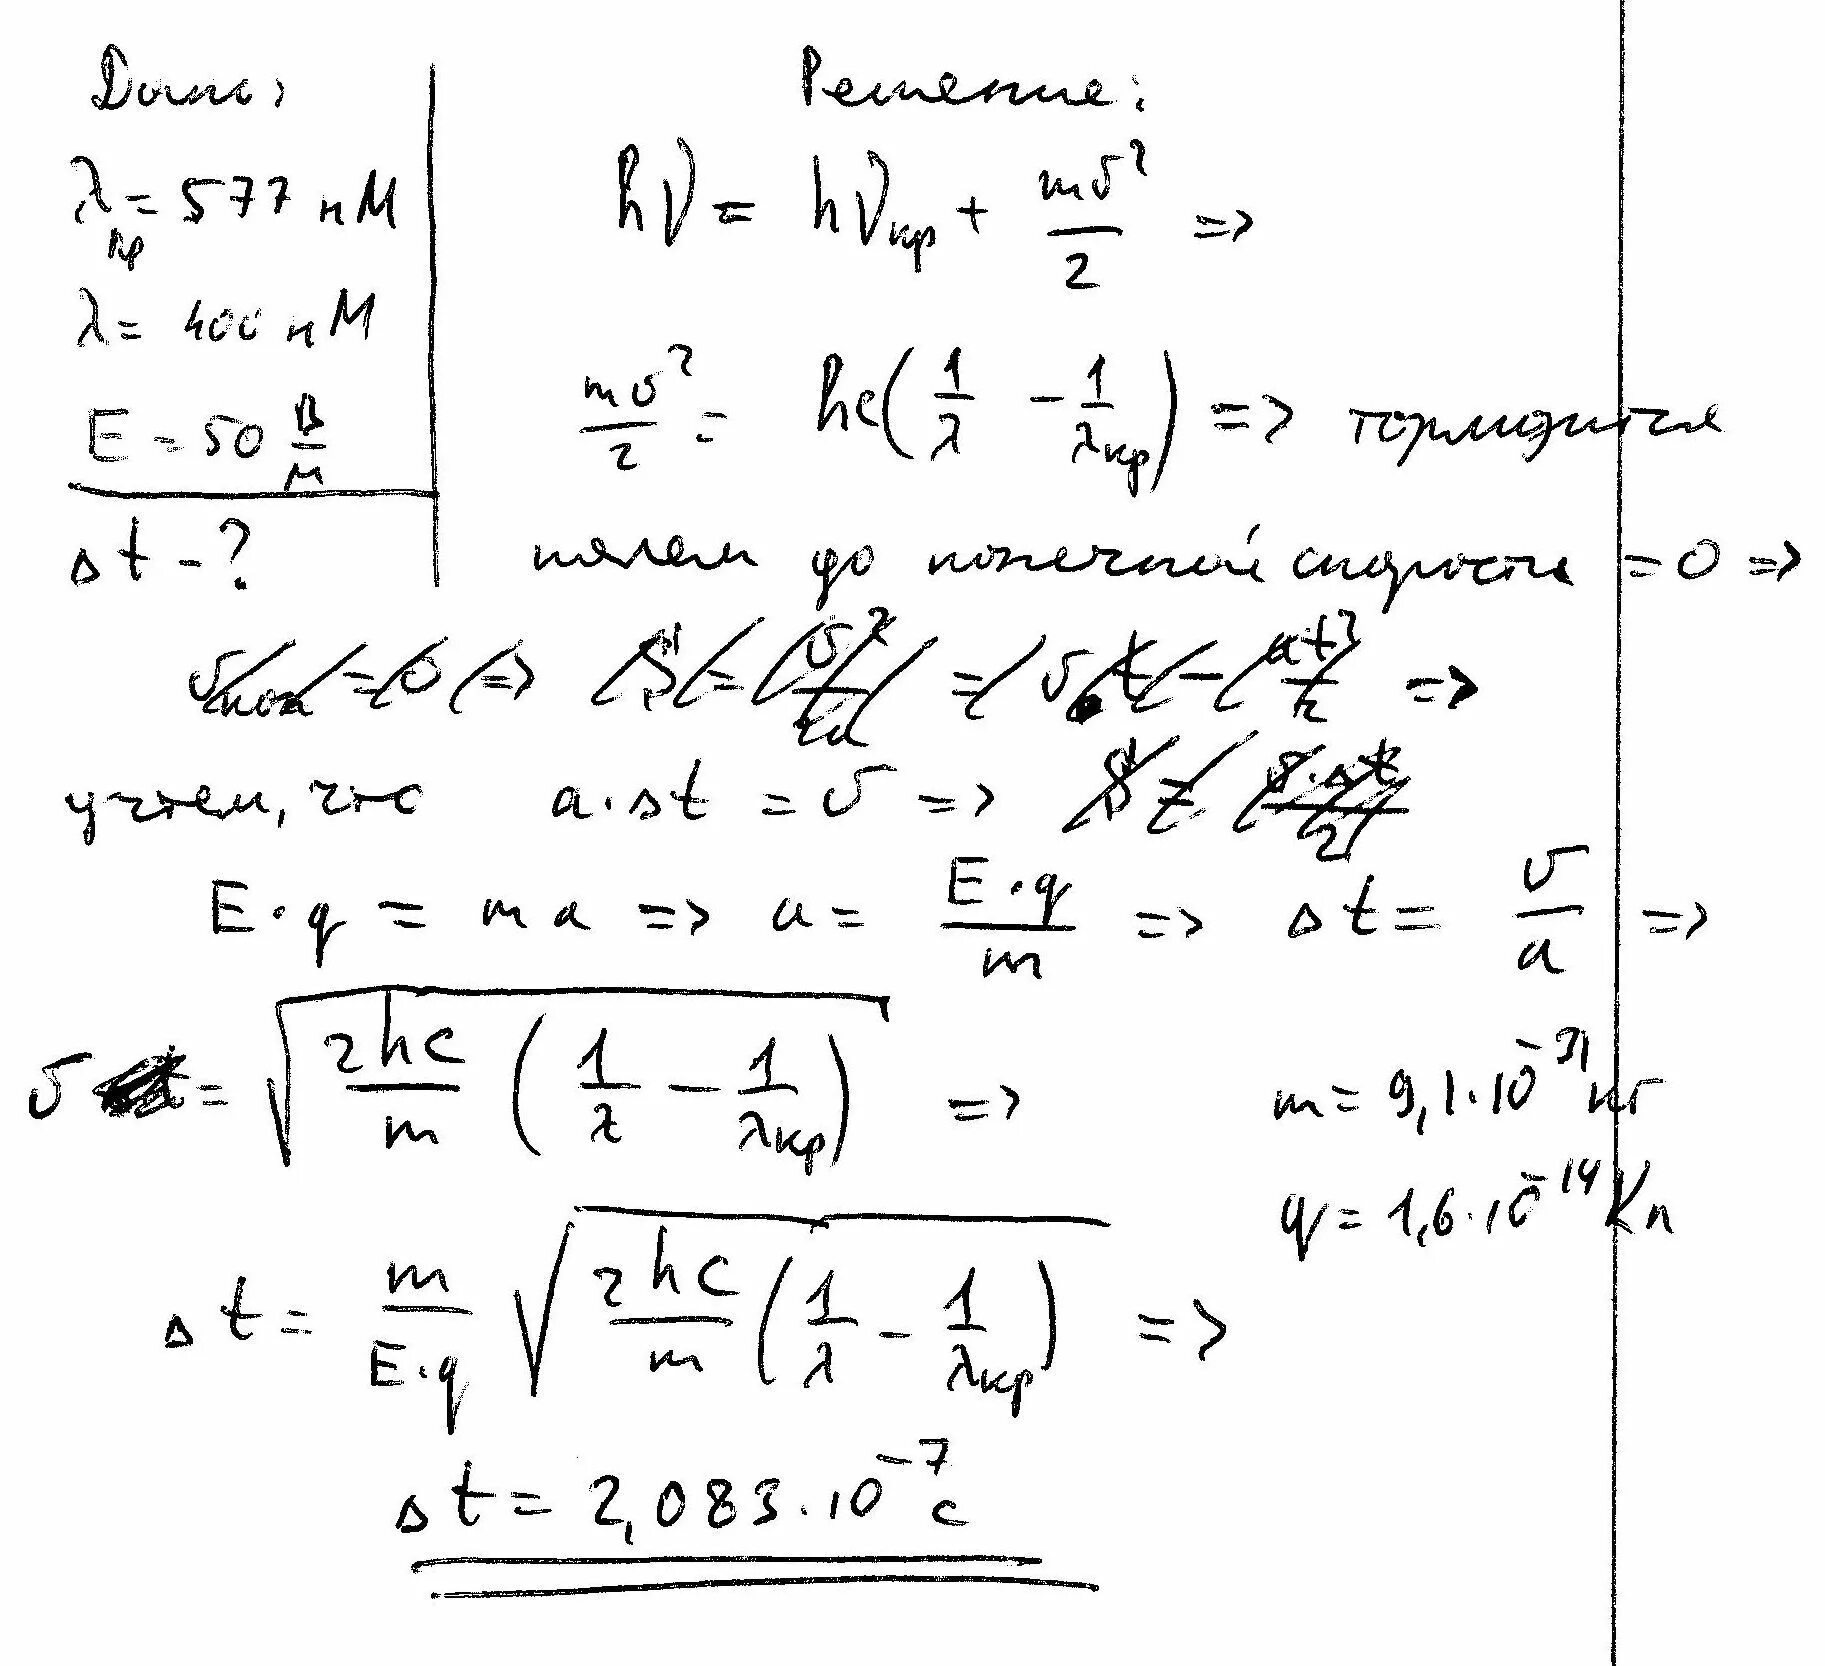 Дано:
λкр = 577 нм
λ = 400 нм
E = 50 В/м
Δt - ?
Решение:
hν = hνкр + mv²/2 =>
mv²/2 = hc(1/λ - 1/λкр) => тормозится
полем до конечной скорости = 0 =>
vкон = 0 => S = v²/2a = v₀t - at²/2 =>
учтем, что a·Δt = v => S = v·Δt/2
E·q = ma => a = E·q/m => Δt = v/a =>
v = √(2hc/m (1/λ - 1/λкр)) =>
m = 9,1·10⁻³¹ кг
q = 1,6·10⁻¹⁹ Кл
Δt = m/E·q √(2hc/m (1/λ - 1/λкр)) =>
Δt = 2,083·10⁻⁷ c